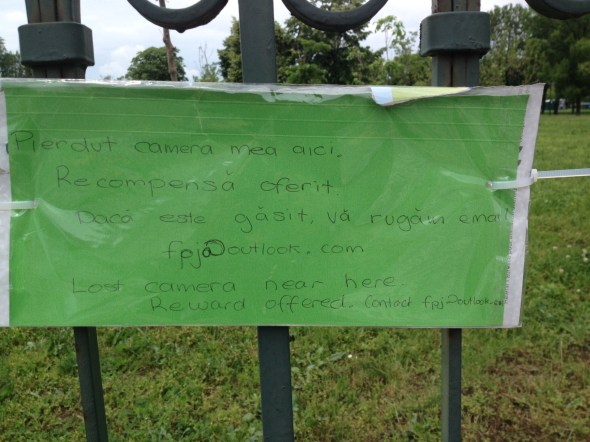 Pierdut camera mea aici.
Recompensă oferit
Dacă este găsit, vă rugăm email
fpj@outlook.com
Lost camera near here.
Reward offered. Contact fpj@outlook.com